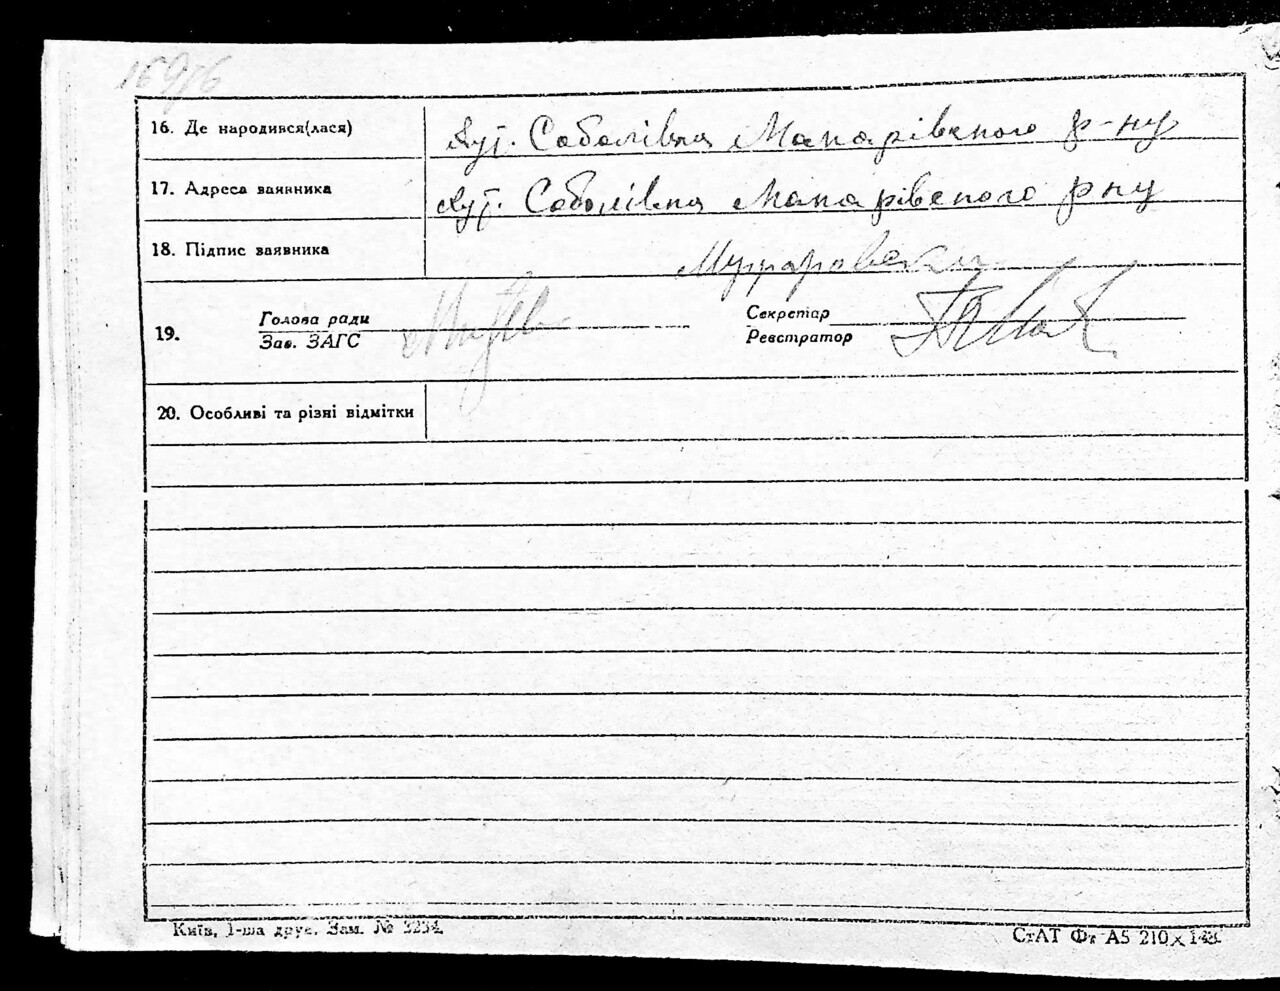 16. Де народився(лася) хут. Соболівка Макарівського р-ну
17. Адреса заявника хут. Соболівка Макарівського рну
18. Підпис заявника
19. Голова ради Секретар
Зав. ЗАГС Реєстратор
20. Особливі та різні відмітки
Київ, 1-ша друк. Зам. № 3234.
СтАТ Фт А5 210х148.